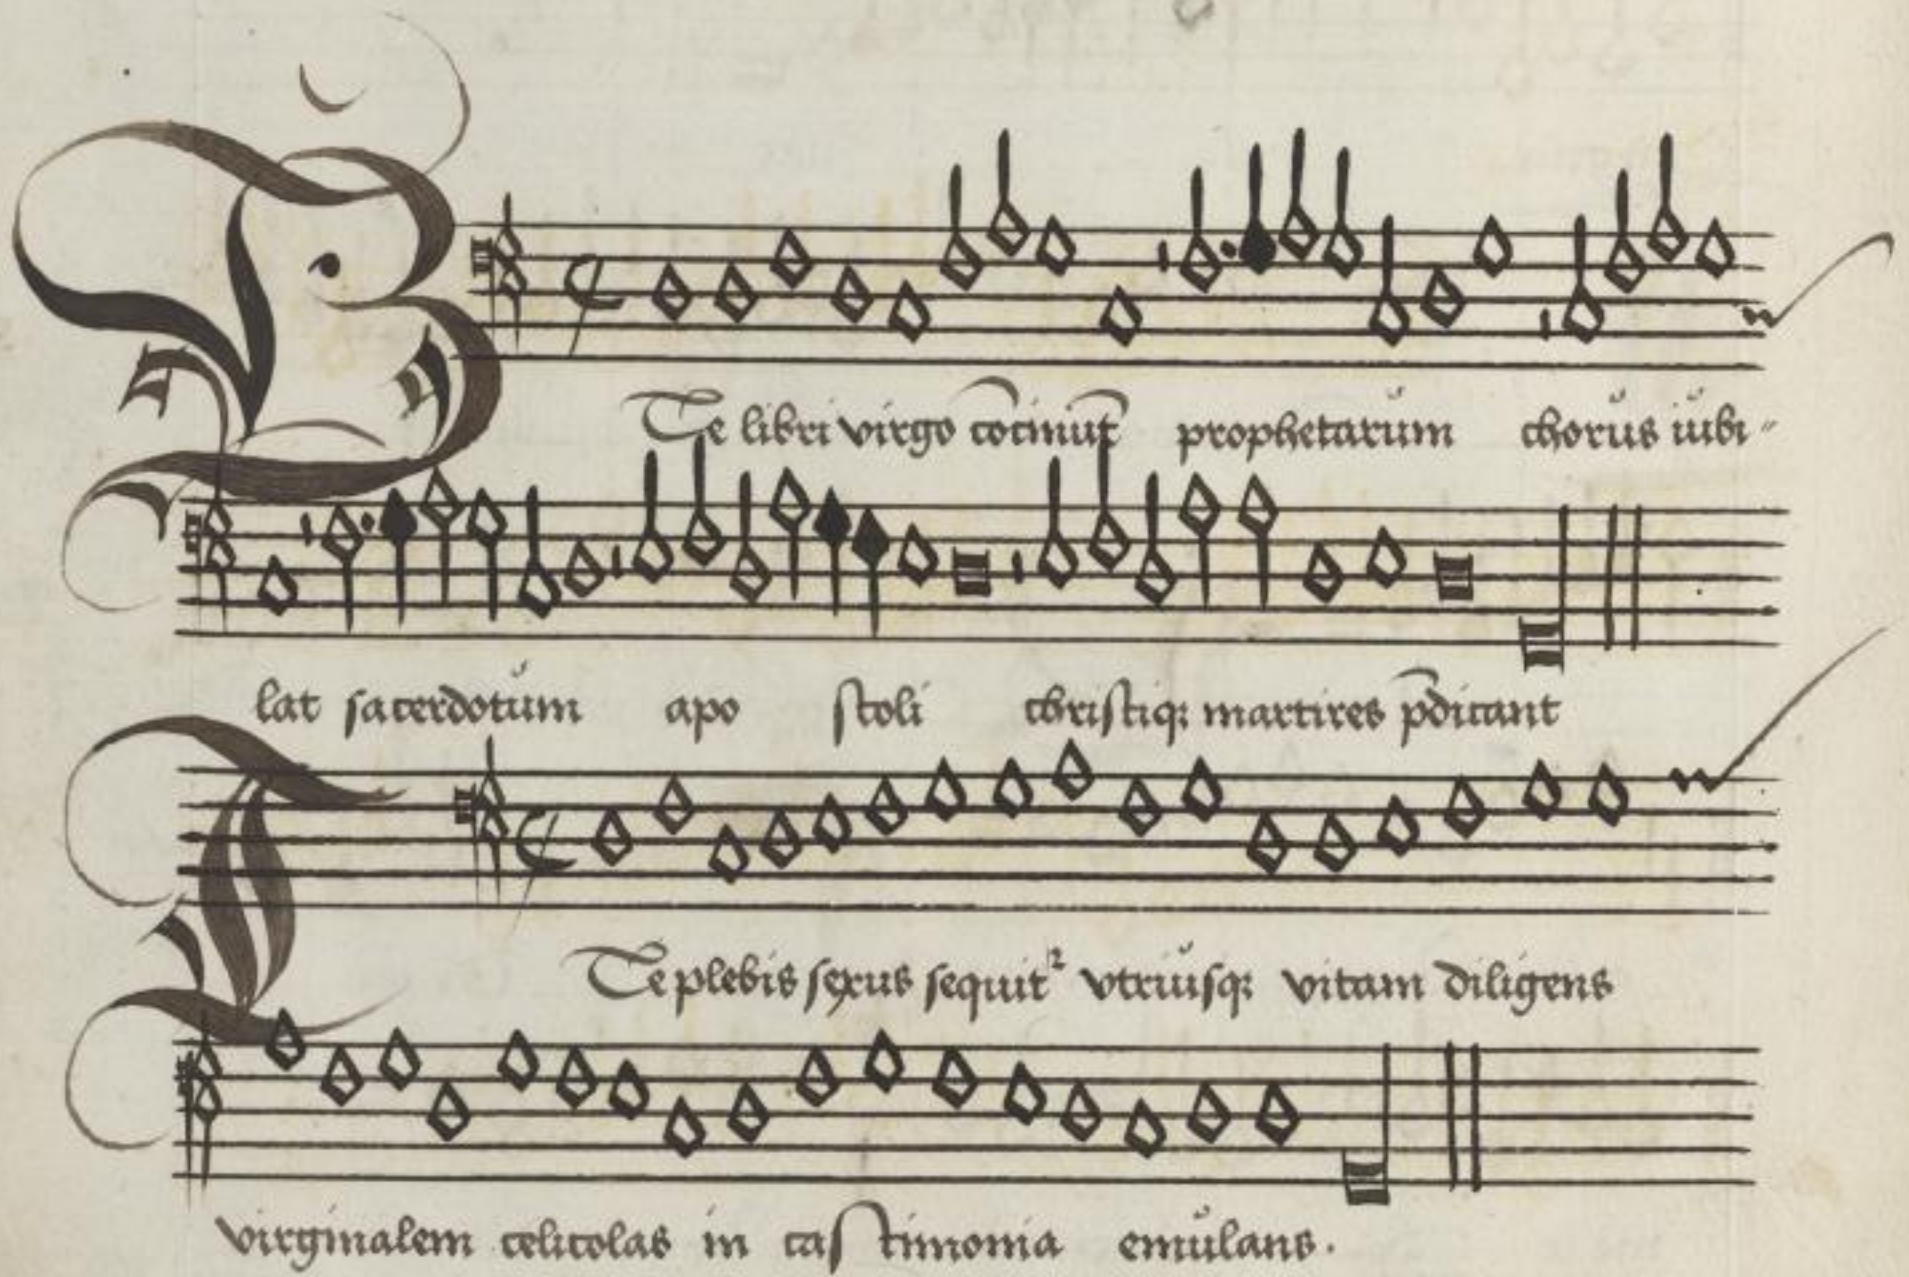 Te libri virgo cōcinūt prophetarum chorus iubi-
lat sacerdotum apo stoli christiqꝫ martires p̄dicant
Te plebis sexus sequitᷣ vtriusqꝫ vitam diligens
virginalem celicolas in cas timonia emulans.